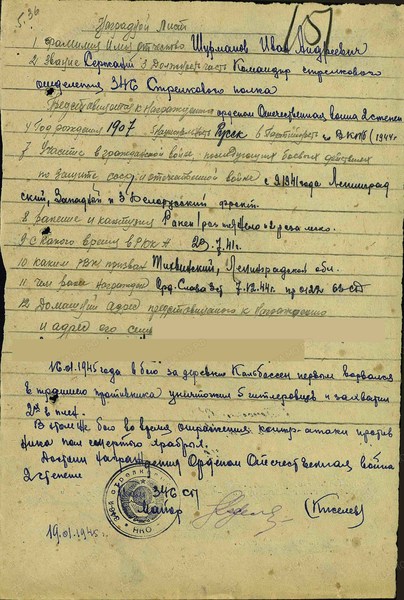 5.36
15
Наградной Лист
1 Фамилия Имя Отчество Шурманов Иван Андреевич
2 Звание Сержант 3 Должность часть Командир стрелкового
отделения 346 Стрелкового полка
Представляется к награждению орденом Отечественная война 2 степен
4 Год рождения 1907 Русск в ВКПб (1944г
7 Участие в гражданской войне, последующих боевых действиях
по защите СССР и отечественной войне с 9.1941 года Ленинград
ский, Западный и 3 Белорусский фронт.
8 ранение и контузия Ранен 1 раз тяжело и 2 раза легко.
9 С какого время в РККА 29.7.41г.
10 каким РВК призван Тихвинский, Ленинградская обл.
11 Чем ранее награжден Орд. Слава 3 ст 7.12.44г. пр 0122 63 СД
12 Домашний адрес представляемого к награждению
и адрес его семьи
16.01.1945 года в бою за деревню Колбассен первым ворвался
в траншею противника уничтожил 5 гитлеровцев и захватил
2х в плен.
В этом же бою во время отражения контр-атаки против
ника пал смертью храбрых.
Достоин Награждения Орденом Отечественная война
2 степени
346 СП
Майор (Киселев)
НКО
19.01.1945г.